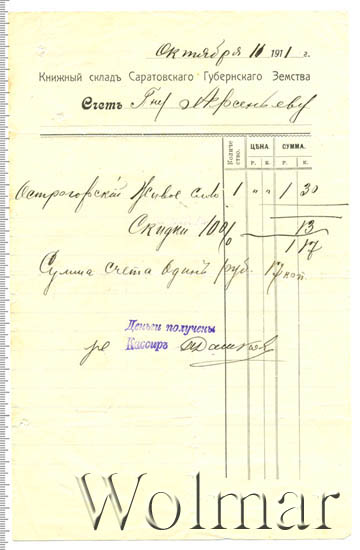 Октября 16 1911 г.
Книжный складъ Саратовскаго Губернскаго Земства
Счетъ Гну Арсеньеву
Количество. ЦѢНА. СУММА.
Р. К. Р. К.
Острогорскій Живое сло 1 " " 1 30
Скидки 10% 13
1 17
Сумма счета одинъ руб. 17 коп.
Деньги получены
Кассиръ
Wolmar